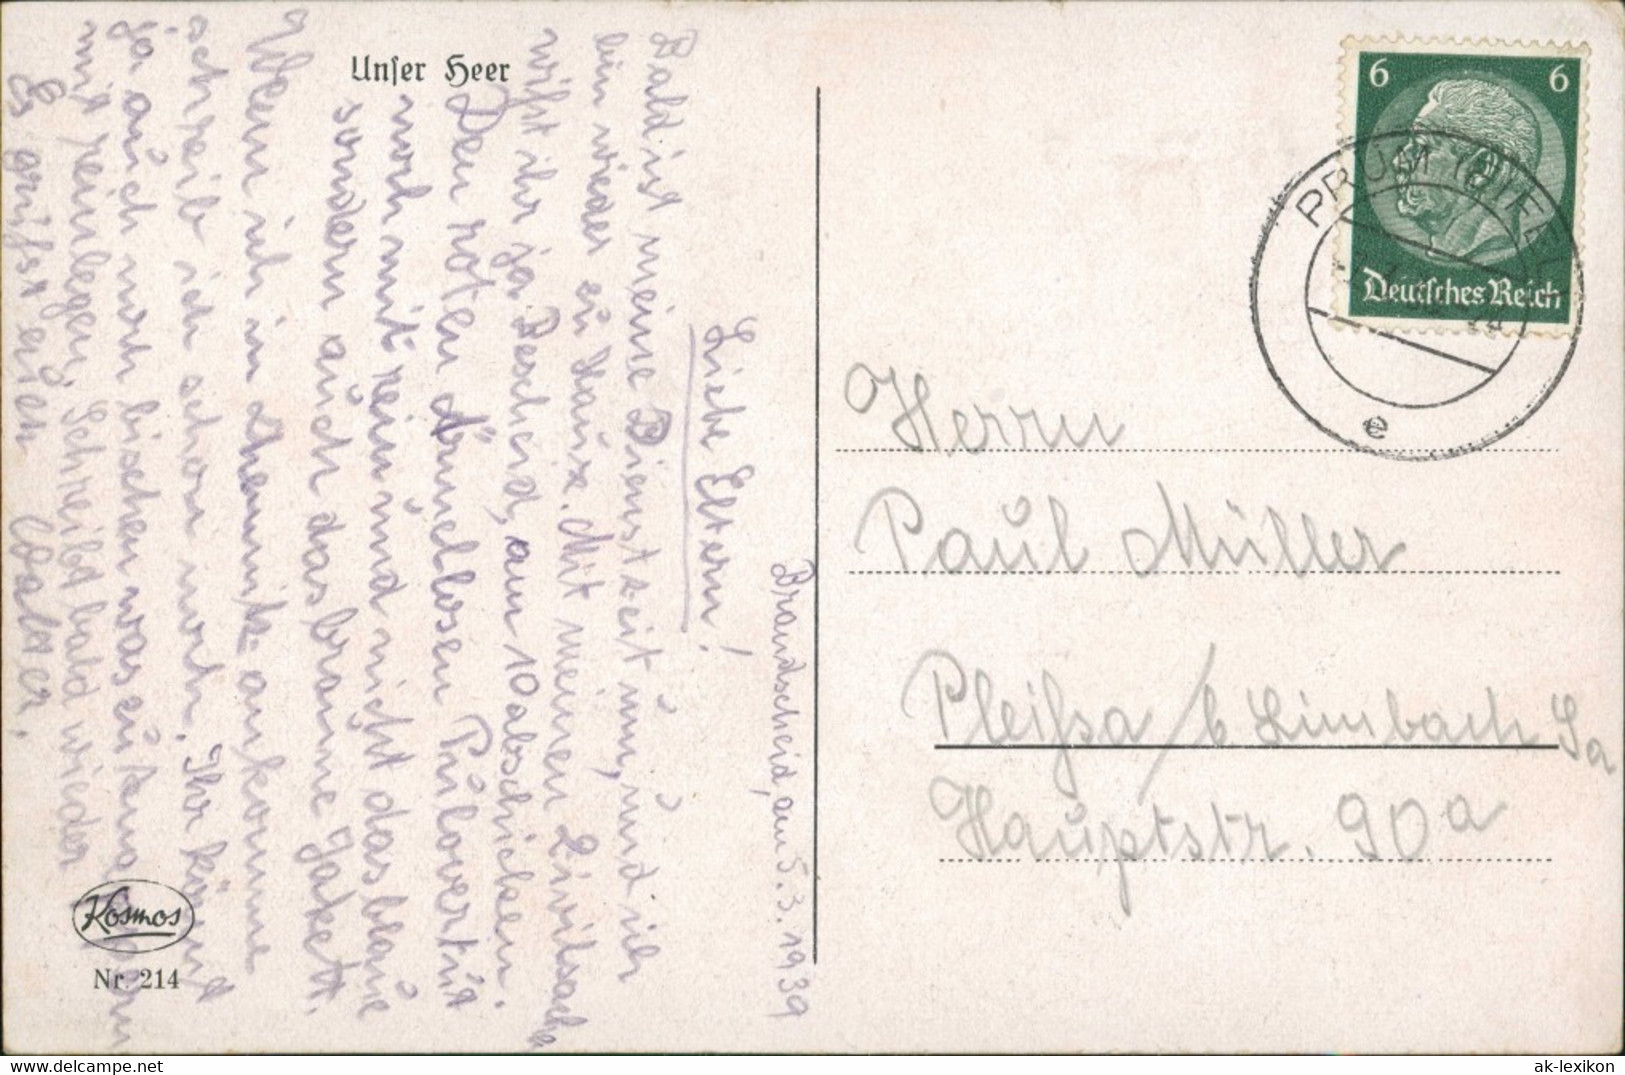 Unser Heer
Brandscheid, am 5.3.1939
Liebe Eltern!
Bald ist meine Dienstzeit um, und ich
bin wieder zu Hause. Mit meinen Zivilsachen
wißt ihr ja Bescheid, am 10 abschicken.
Den roten ärmellosen Pulower tut
noch mit rein und nicht das blaue
sondern auch das braune Jakett.
Wenn ich in Chemnitz ankomme
schreib ich schon noch. Ihr könnt
ja auch noch bischen was zu
mit reinlegen. Schreibt bald wieder
Es grüßt euch Walter.
Kosmos
Nr. 214
6 6
Deutsches Reich
PRÜM (EIFEL)
e
Herrn
Paul Müller
Pleißa / b Limbach Sa
Hauptstr. 90a
delcampe.net
ak-lexikon